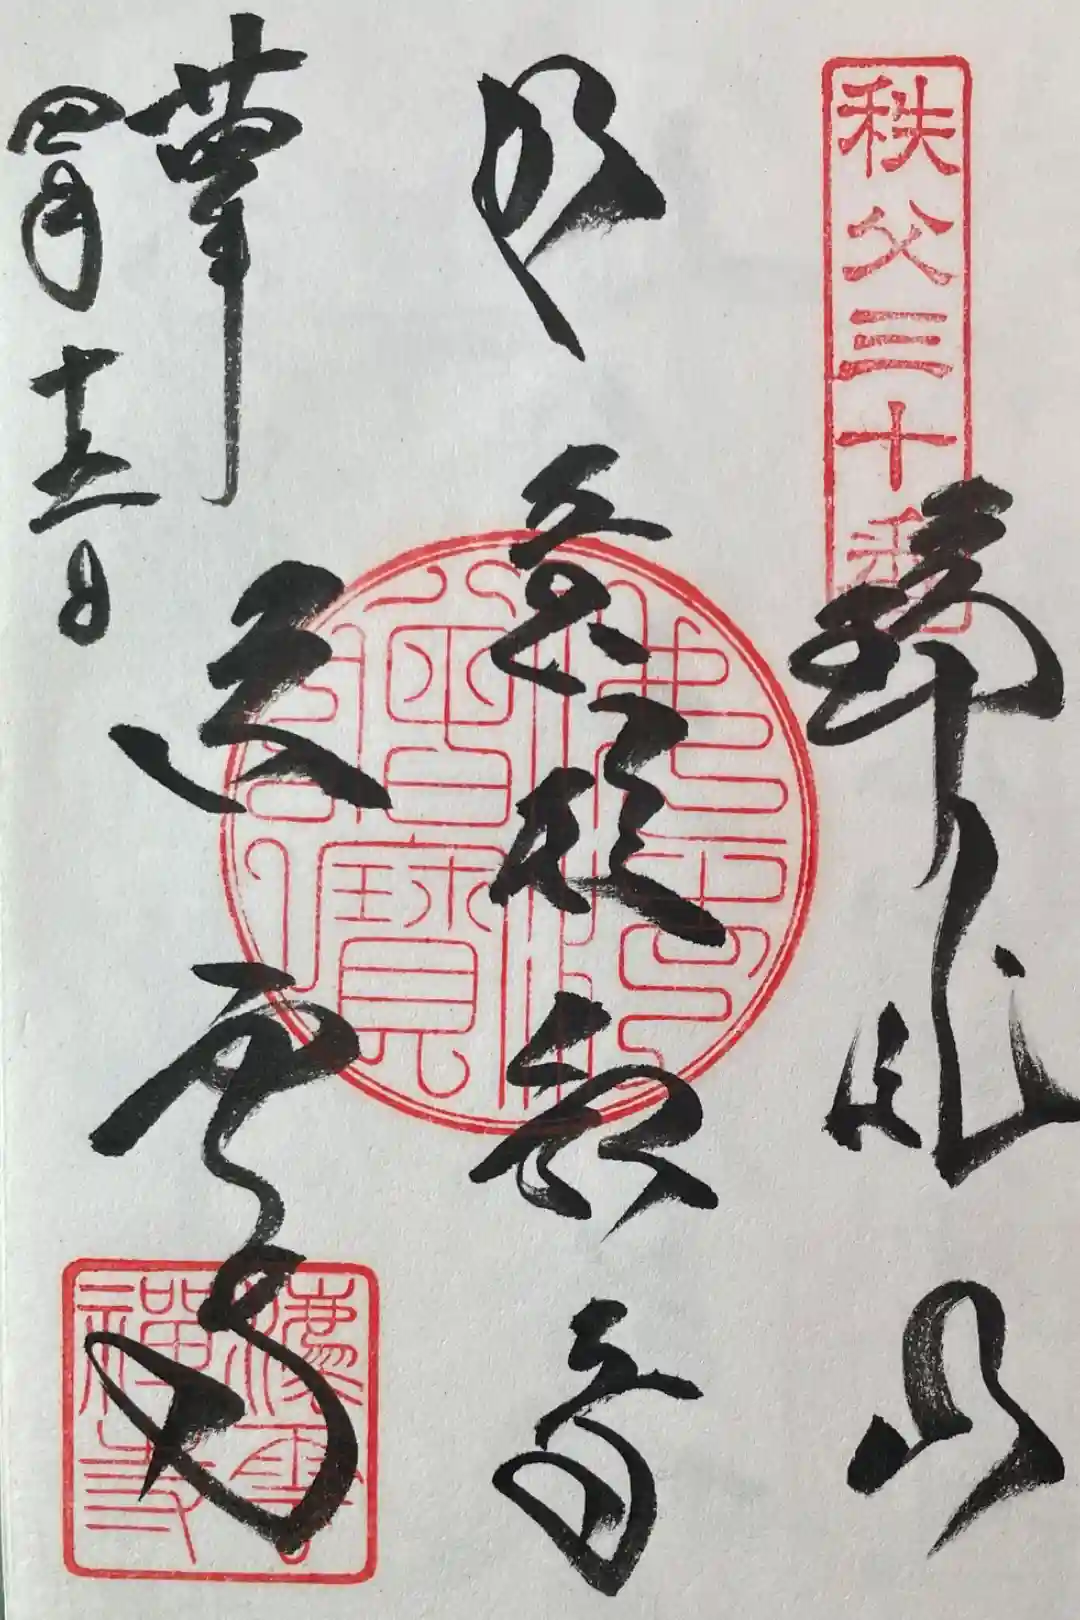 秩父三十番
瑞龍山
如意輪観音
奉拝
法雲寺
四月十五日
佛法僧寶
灋雲禪寺